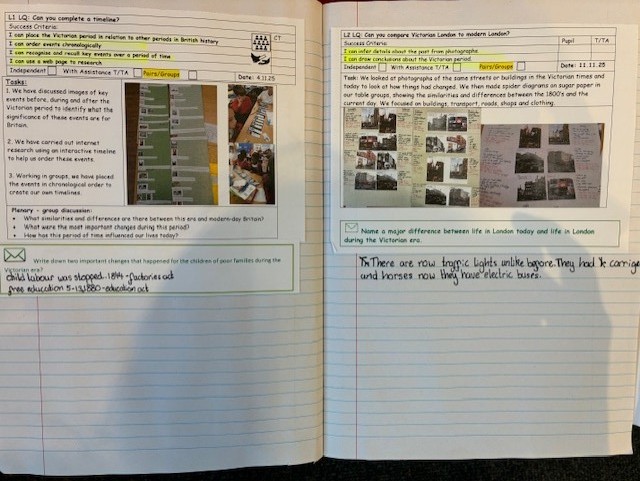 L1 LQ: Can you complete a timeline?
Success Criteria:
I can place the Victorian period in relation to other periods in British history
CT
I can order events chronologically
I can recognise and recall key events over a period of time
I can use a web page to research
Independent With Assistance T/TA Pairs/Groups
Date: 4.11.25
Tasks:
1. We have discussed images of key
events before, during and after the
Victorian period to identify what the
significance of these events are for
Britain.
2. We have carried out internet
research using an interactive timeline
to help us order these events.
3. Working in groups, we have placed
the events in chronological order to
create our own timelines.
Plenary - group discussion:
• What similarities and differences are there between this era and modern-day Britain?
• What were the most important changes during this period?
• How has this period of time influenced our lives today?
Write down two important changes that happened for the children of poor families during the
Victorian era?
child labour was stopped. 1844 - factories act
free education 5-13, 1880 - education act
L2 LQ: Can you compare Victorian London to modern London?
Success Criteria: Pupil T/TA
I can infer details about the past from photographs
I can draw conclusions about the Victorian period.
Independent With Assistance T/TA Pairs/Groups Date: 11.11.25
Task: We looked at photographs of the same streets or buildings in the Victorian times and
today to look at how things had changed. We then made spider diagrams on sugar paper in
our table groups, showing the similarities and differences between the 1800's and the
current day. We focused on buildings, transport, roads, shops and clothing.
Name a major difference between life in London today and life in London
during the Victorian era.
There are now traffic lights unlike before. They had carrige
and horses now they have electric buses.